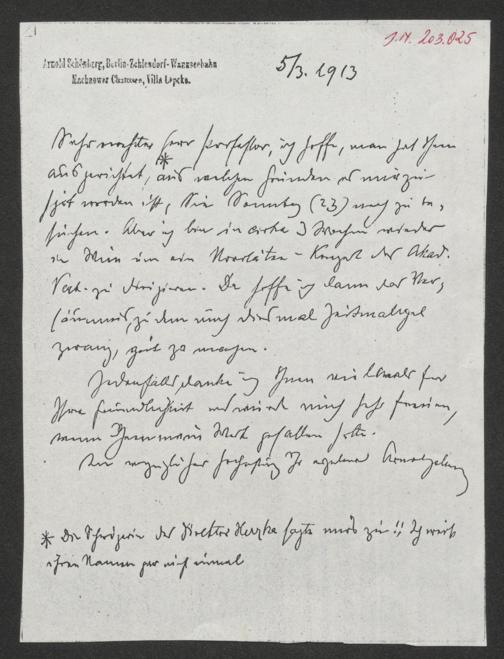 J.N. 203.025
Arnold Schönberg, Berlin-Zehlendorf-Wannseebahn
Machnower Chaussee, Villa Lepcke.
5/3. 1913
Sehr verehrter Herr Professor, ich hoffe, man hat Ihnen
ausgerichtet, * aus welchen Gründen es mir zu
spät worden ist, Sie Sonntag (23) noch zu be-
suchen. Aber ich bin in cirka 3 Wochen wieder
in Wien um ein Novitäten-Konzert des Akad.
Verb. zu dirigieren. Da hoffe ich dann das Ver-
säumnis, zu dem mich diesmal Zeitmangel
zwang, gut zu machen.
Jedenfalls danke ich Ihnen vielmals für
Ihre Freundlichkeit und würde mich sehr freuen,
wenn Ihnen mein Werk gefallen sollte.
In vorzüglicher Hochachtung Ihr ergebener Arnold Schönberg
* Die Schwägerin des Direktor Hertzka sagte mirs zu!! Ich weiß
ihren Namen gar nicht einmal